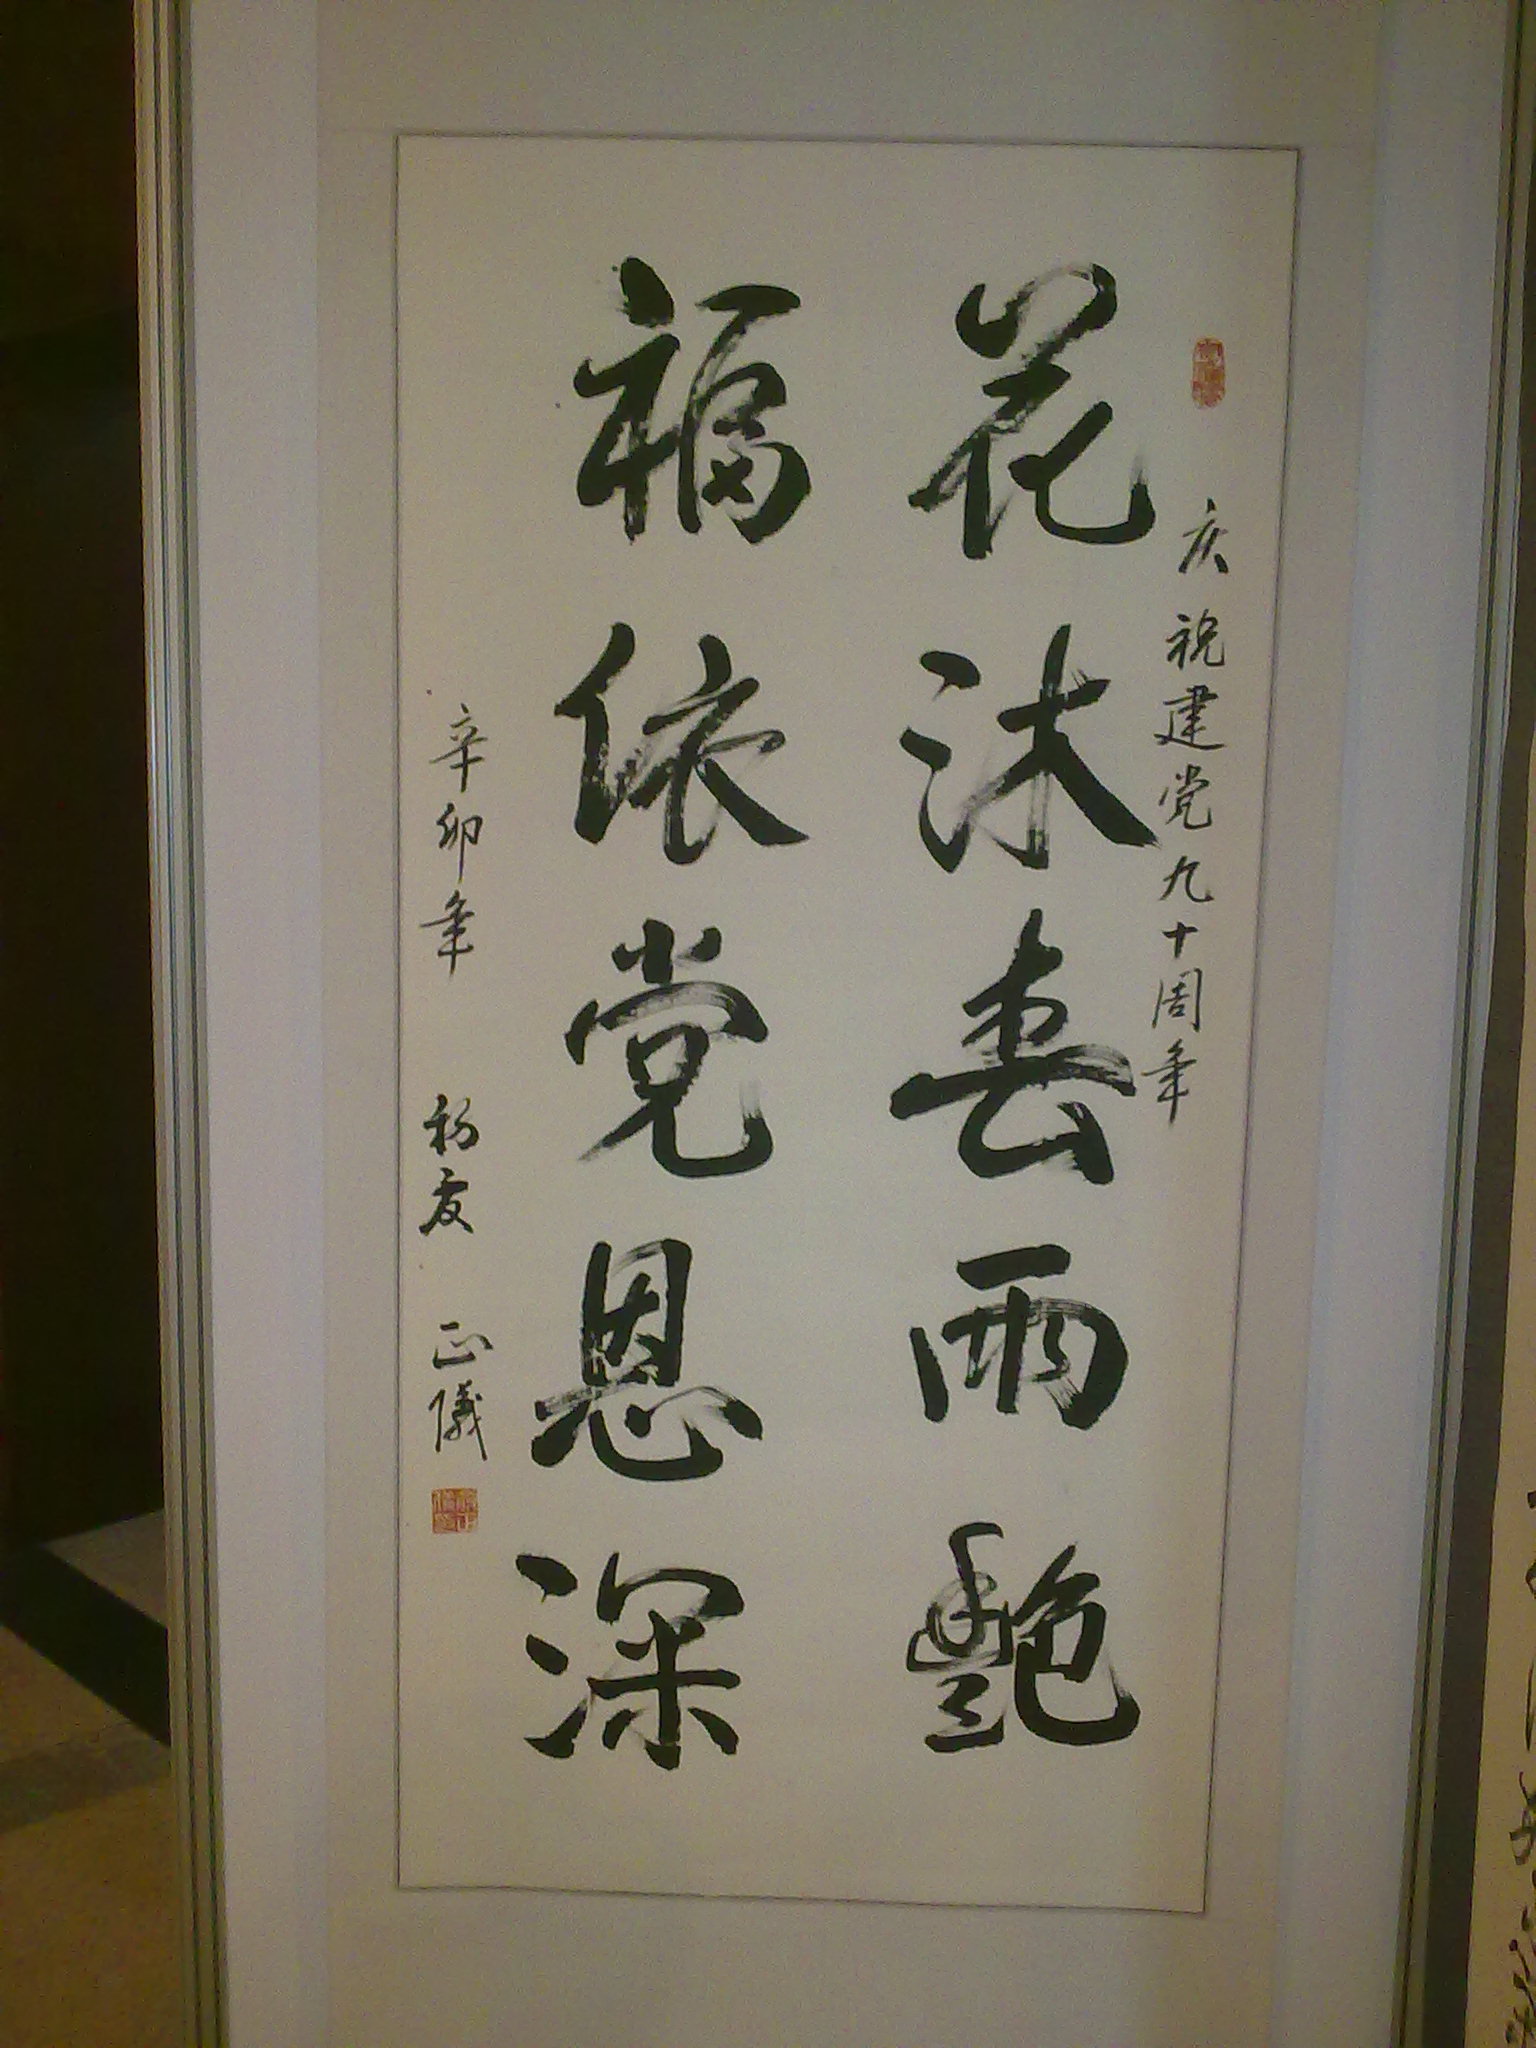 庆祝建党九十周年
花沐春雨艳
福依党恩深
辛卯年 初夏 正仪